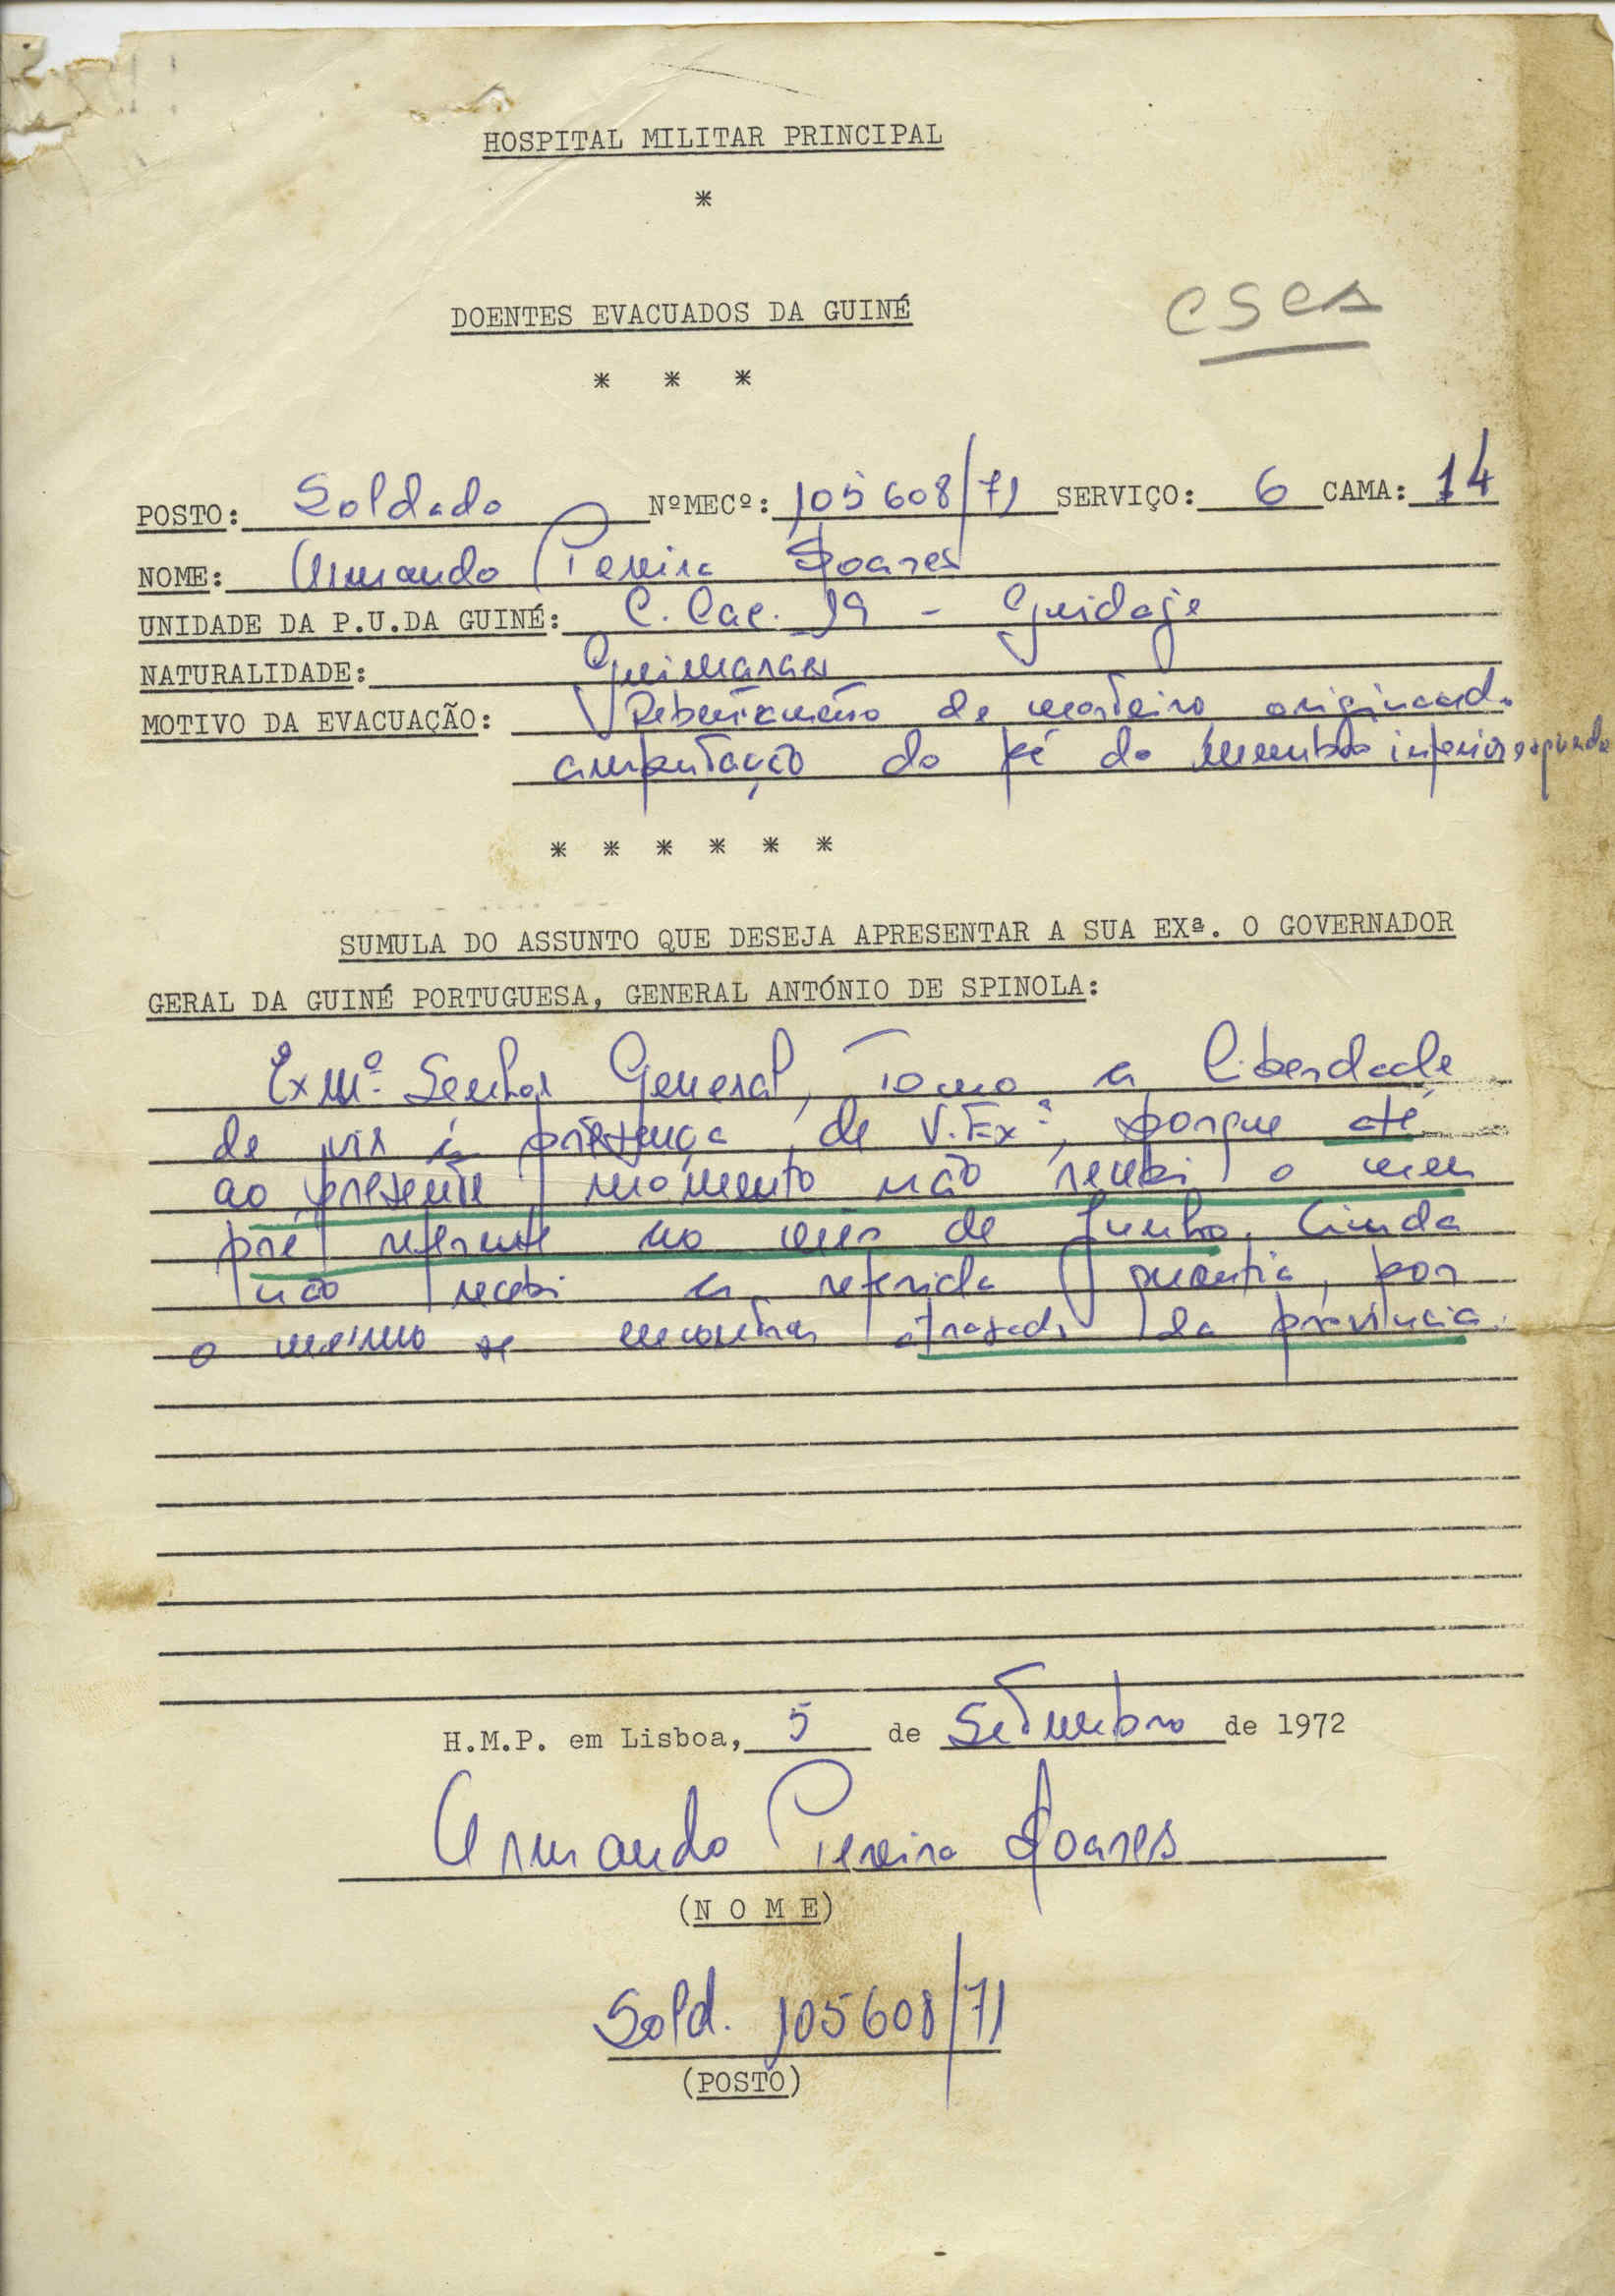 HOSPITAL MILITAR PRINCIPAL
*
DOENTES EVACUADOS DA GUINÉ
* * *
POSTO: Soldado NºMECº: 105608/71 SERVIÇO: 6 CAMA: 14
NOME: Armando Pereira Soares
UNIDADE DA P.U.DA GUINÉ: C. Cac. 19 - Guidaje
NATURALIDADE: Guimarães
MOTIVO DA EVACUAÇÃO: Rebentamento de morteiro originando
amputação do pé do membro inferior esquerdo
* * * * * *
SUMULA DO ASSUNTO QUE DESEJA APRESENTAR A SUA EXª. O GOVERNADOR
GERAL DA GUINÉ PORTUGUESA, GENERAL ANTÓNIO DE SPINOLA:
Exmº. Senhor General, Tomo a liberdade
de vir à presença de V. Exª, porque até
ao presente momento não recebi o meu
pré referente ao mês de Junho. Ainda
não recebi a referida quantia, por
o mesmo se encontrar atrasado da província.
H.M.P. em Lisboa, 5 de Setembro de 1972
Armando Pereira Soares
(N O M E)
Sold. 105608/71
(POSTO)